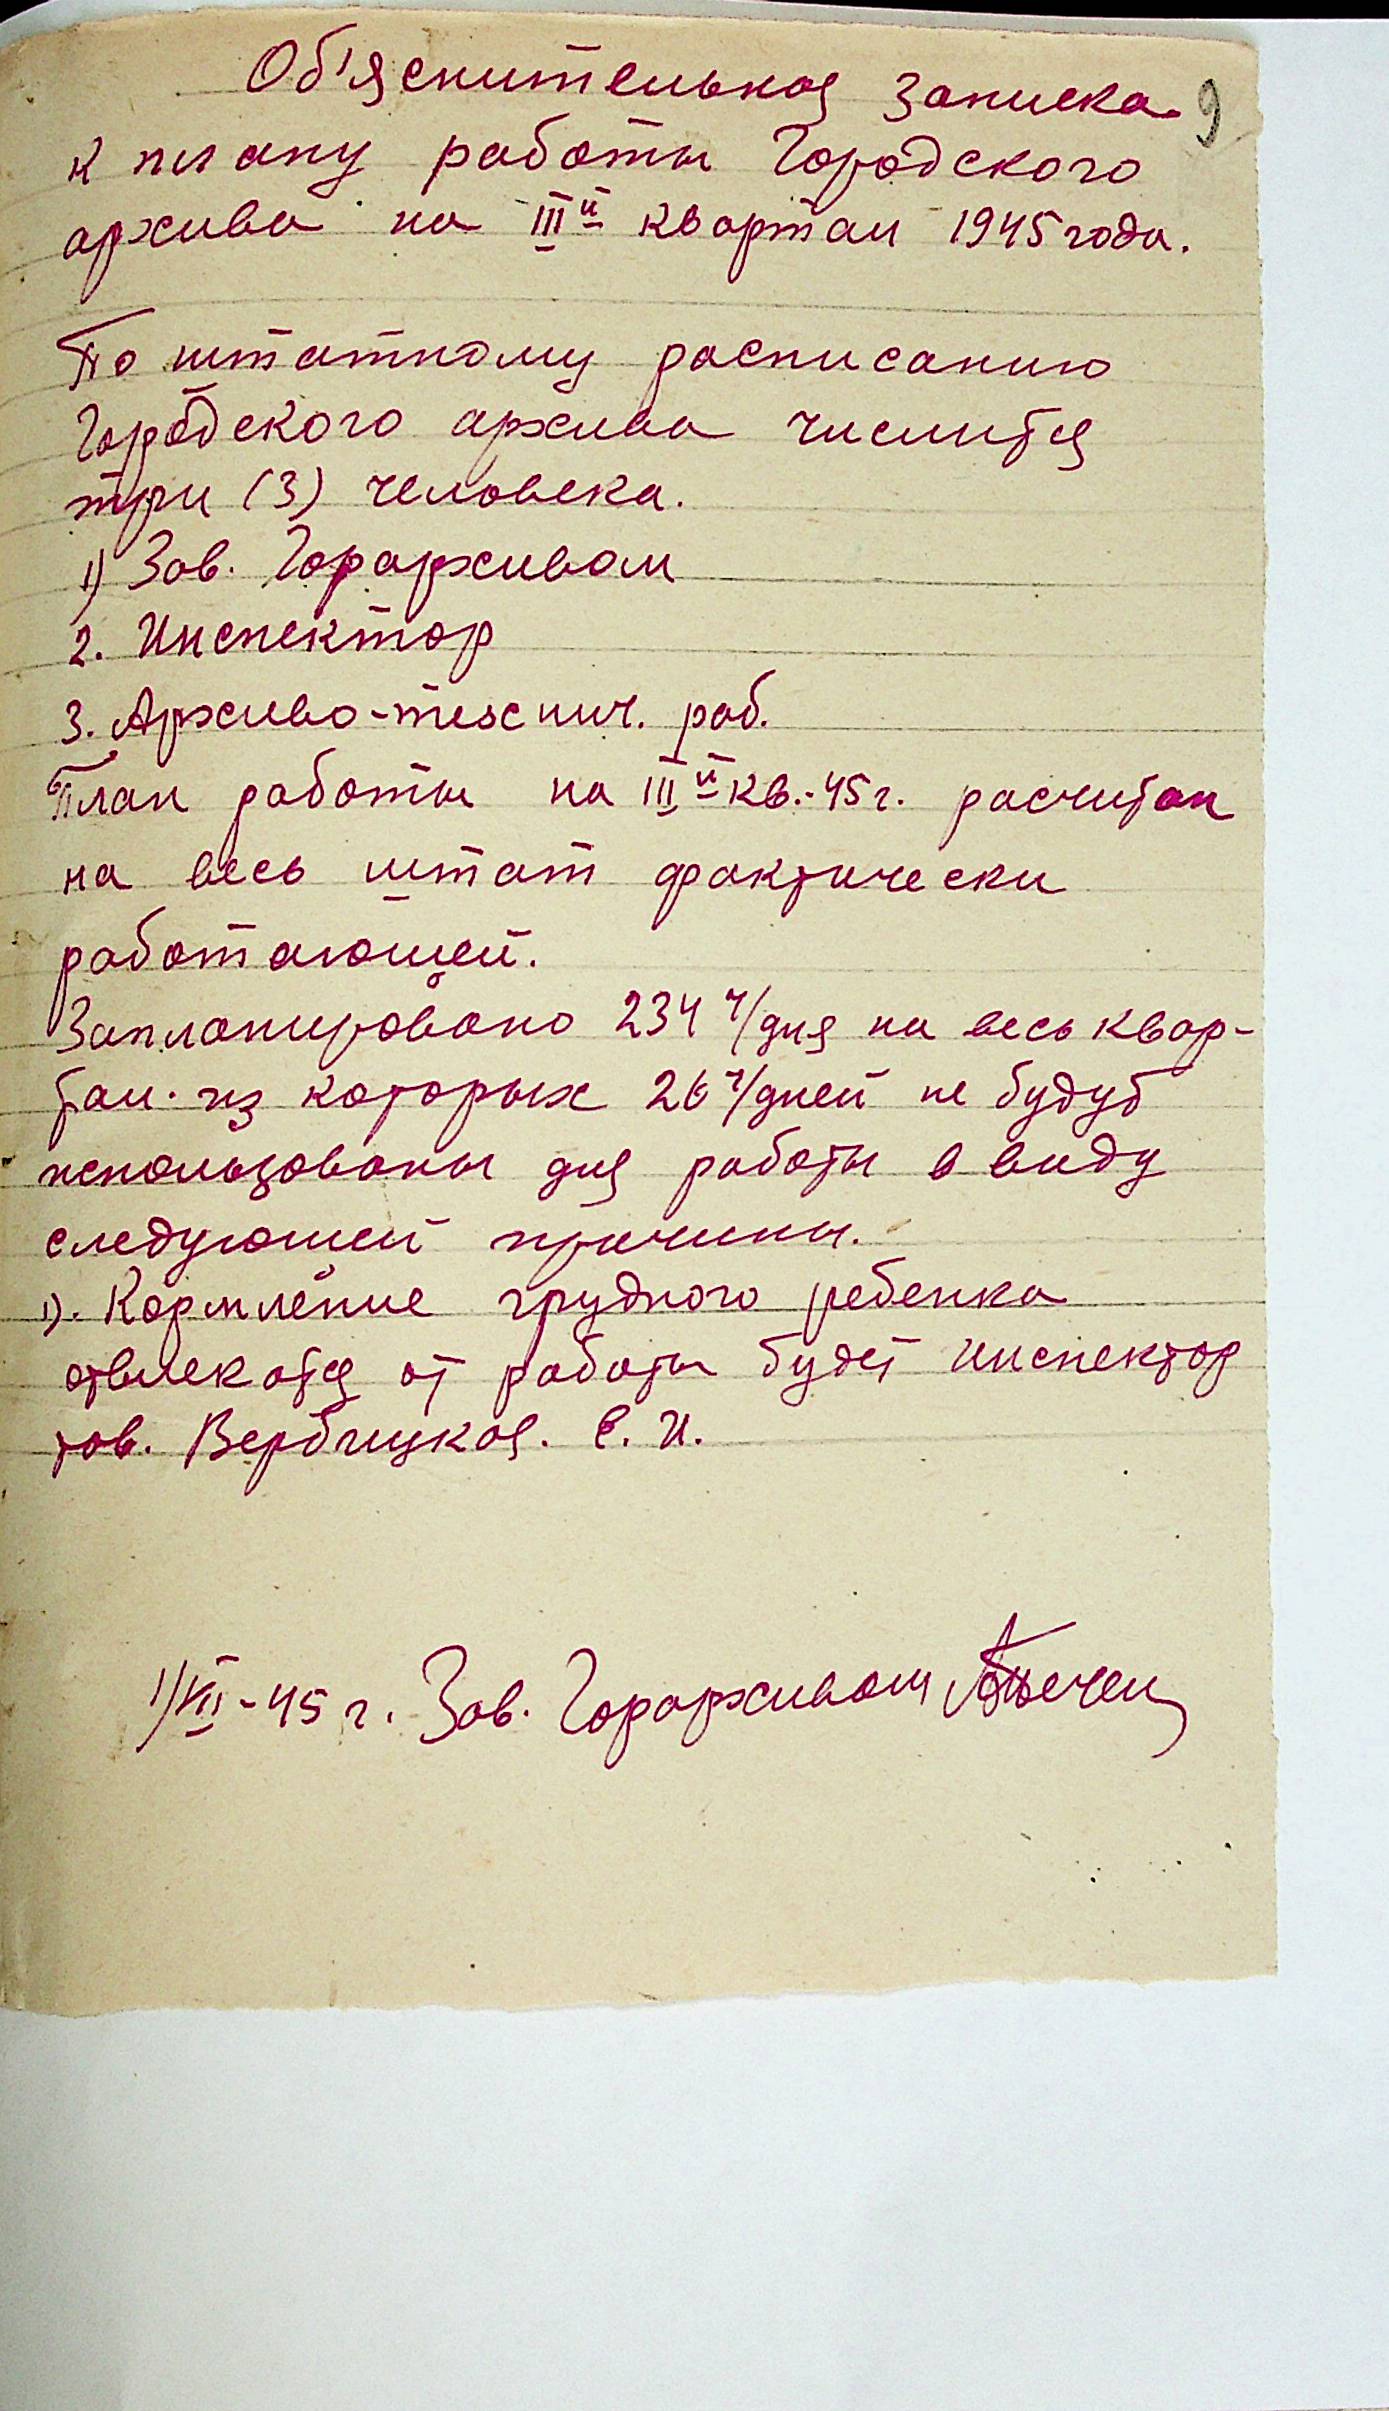 Об'яснительная записка 9
к плану работы Городского
архива на III й квартал 1945 года.
По штатному расписанию
Городского архива числится
три (3) человека.
1) Зав. Горархивом
2. Инспектор
3. Архиво-технич. раб.
План работы на III й кв.-45 г. расчитан
на весь штат фактически
работающей.
Запланировано 234 ч/дня на весь квар-
тал. из которых 26 ч/дней не будут
использованы для работы в виду
следующей причины.
1). Кормление грудного ребенка
отвлекатся от работы будет инспектор
тов. Вербицкая. Е. И.
1/VII-45 г. Зав. Горархивом